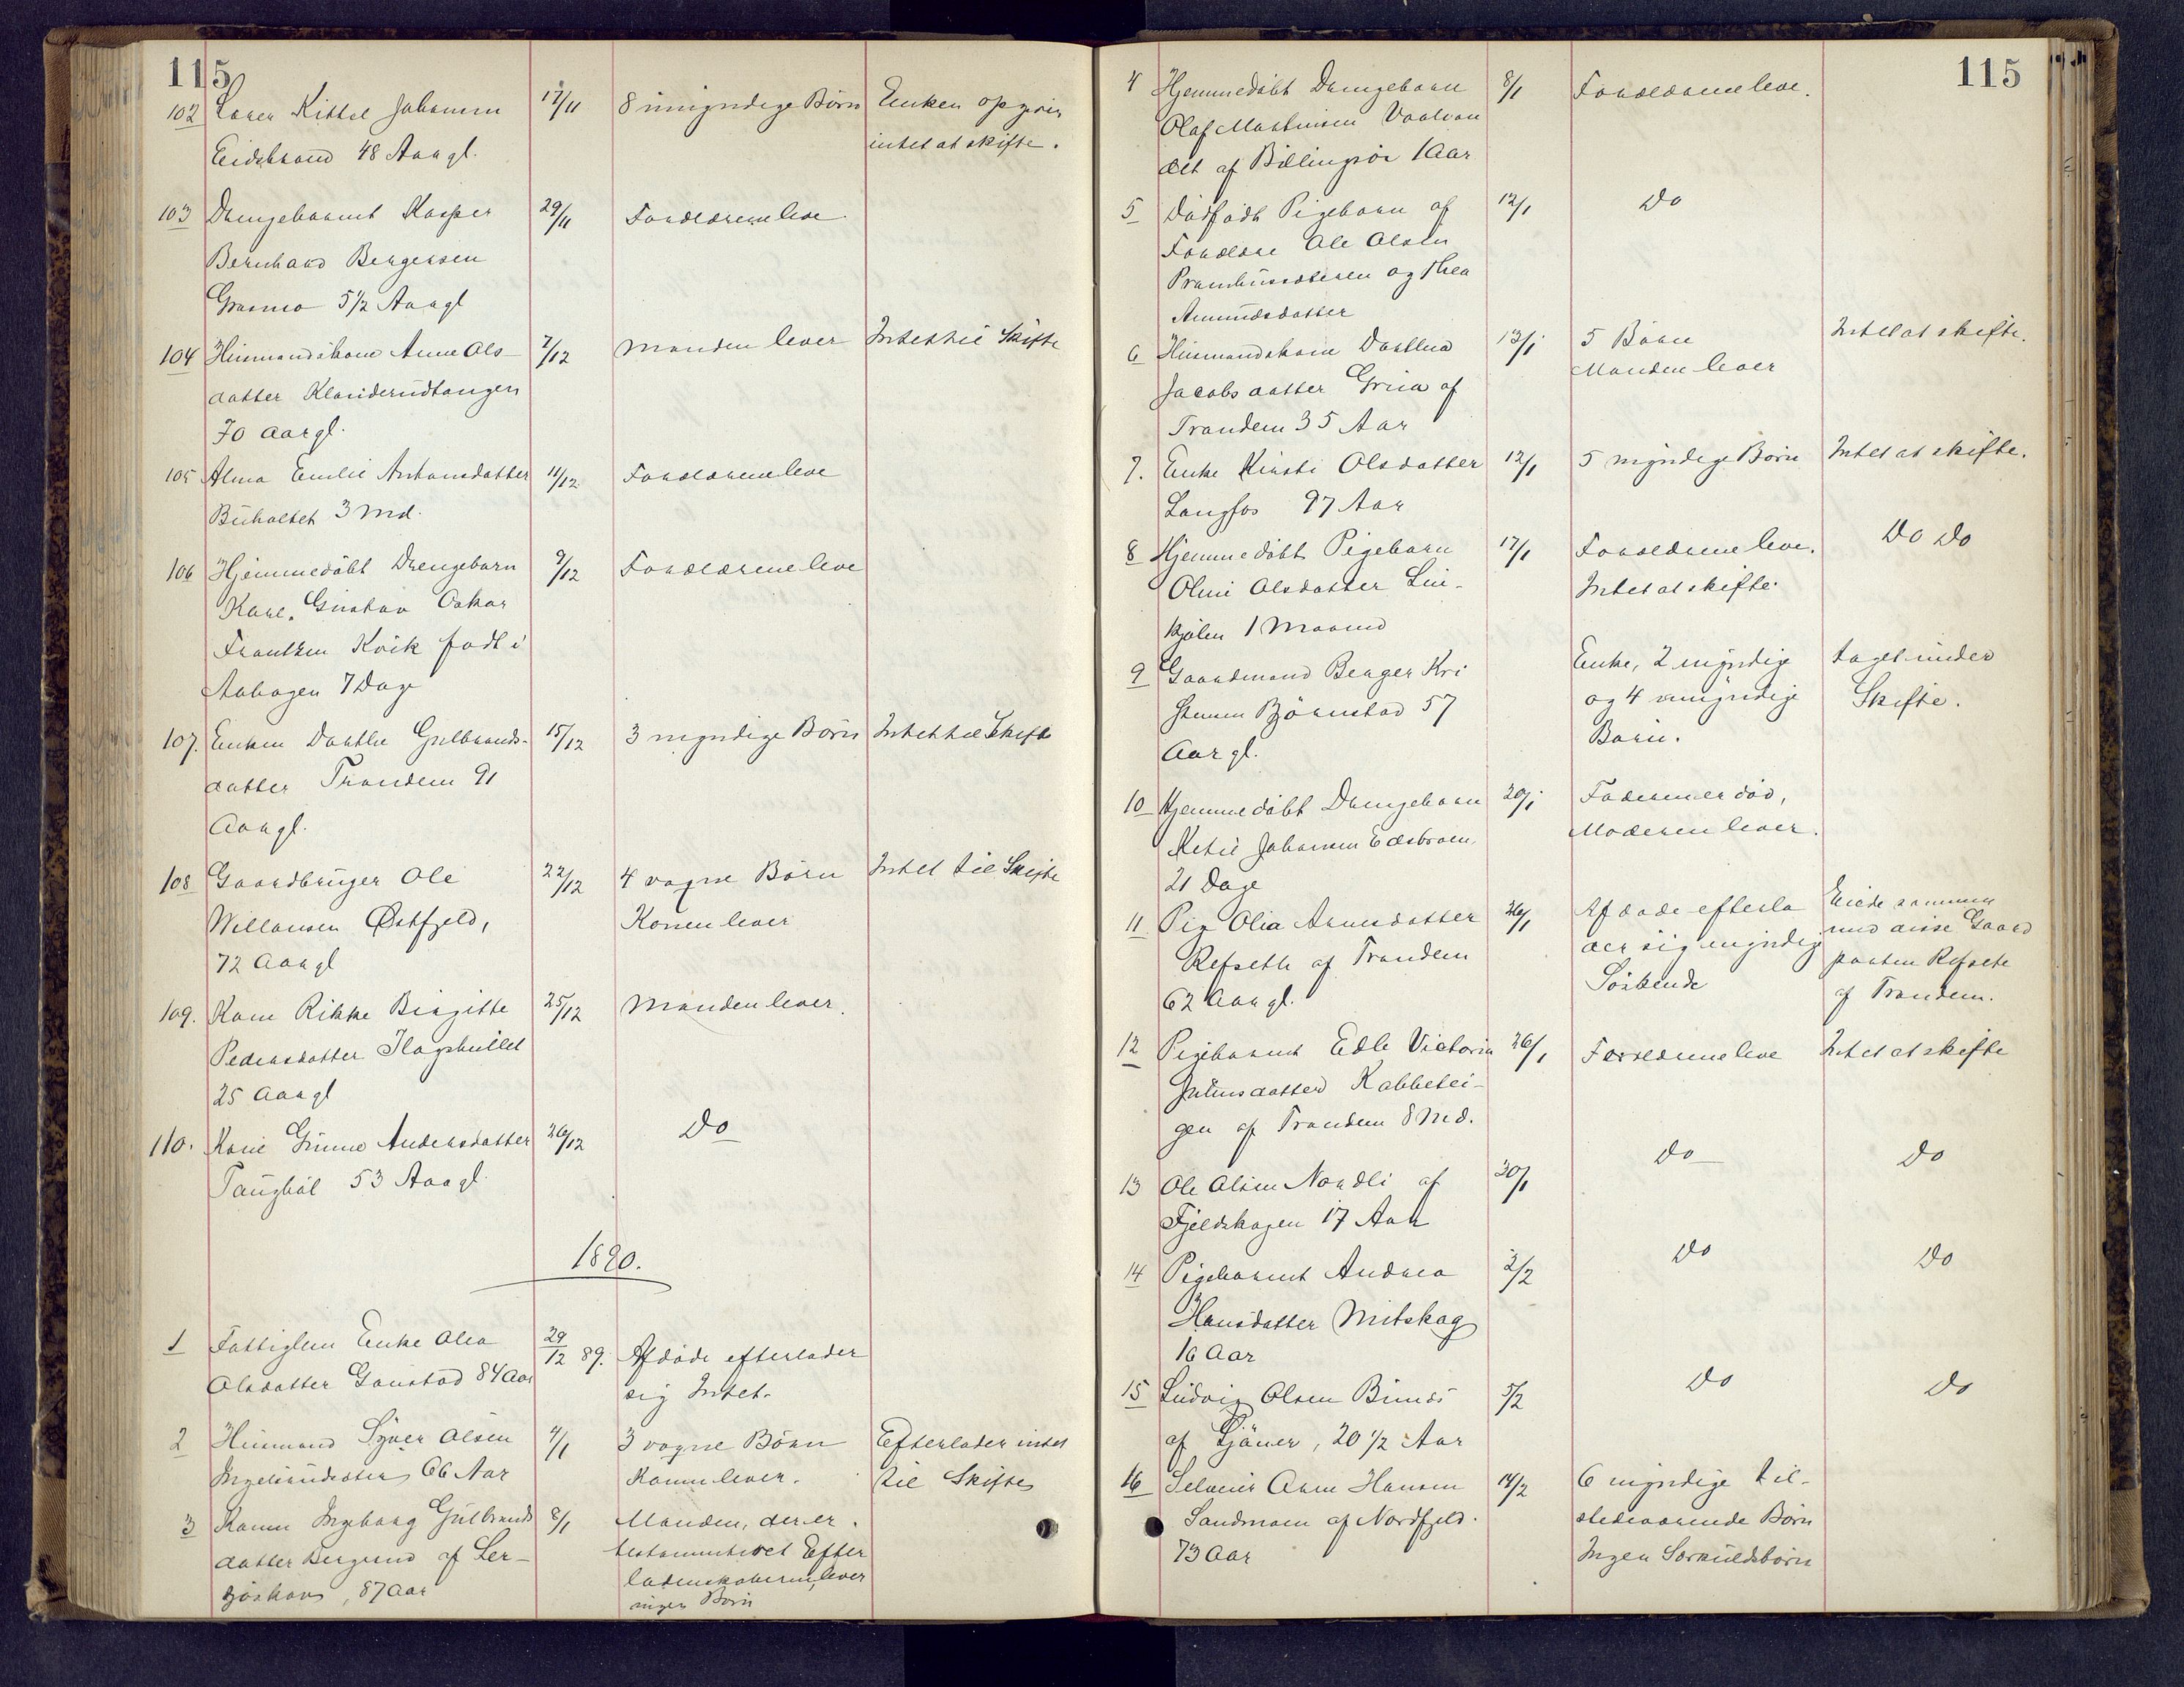 115
102 Karen Kittel Johansen 17/11 8 umyndige Børn Enken opgiver
Eidsbraaed 48 Aar gl. intet at skifte.
103 Drengebarnet Kasper 29/11 Forældrene leve
Bernhard Bergersen
Graamo 5 1/2 Aar gl
104 Husmandskone Anne Ols- 7/12 Manden lever Intet til Skifte
datter Klonderudtangen
70 Aar gl.
105 Alma Emilie Antonsdatter 11/12 Forældrene leve
Buholtet 3 Md.
106 Hjemmedøbt Drengebarn 9/12 Forældrene leve
Karl Gustav Oskar
Frantzen Kvik født i
7 Dage
107. Enken Dorthe Gulbrands- 15/12 3 myndige Børn Intet til Skifte
datter Trandem 91
Aar gl.
108 Gaardbruger Ole 22/12 4 voxne Børn Intet til Skifte
Willansen Østfjeld, Konen lever
72 Aar gl
109. Kone Rikke Birgitte 25/12 Manden lever.
Pedersdatter
25 Aar gl
110. Kone Gunne Andersdatter 26/12 Do
53 Aar gl.
1890.
1 Fattiglem Enke Olea 29/12 89. Afdøde efterlader
Olsdatter Gaustad 84 Aar sig Intet.
2 Husmand Syver Olsen 4/1 3 voxne Børn Efterlader intet
66 Aar Konen lever. til Skifte
3 Konen Ingeborg Gulbrands 8/1 Manden, der er
datter Bergend af Ler- testamenteret Efter
87 Aar ladenskaberne, lever
ingen Børn
115
4 Hjemmedøbt Drengebarn 8/1 Forældrene leve.
Olaf Martinsen
af 1 Aar
5 Dødfødt Pigebarn af 12/1 Do
Forældre Ole Olsen
og Thea
Amundsdatter
6 Husmandskone Dorthea 13/1 5 Børn Intet at skifte.
Jacobsdatter Grina af Manden lever
Trandem 35 Aar
7. Enke Kirsti Olsdatter 12/1 5 myndige Børn Intet at skifte.
Langfos 97 Aar
8 Hjemmedøbt Pigebarn 17/1 Forældrene leve. Do Do
Oline Olsdatter Lin- Intet at skifte.
kjølen 1 Maaned
9 Gaardmand Berger Kri Enke, 2 myndige taget under
stensen Bjørnstad 57 og 4 umyndige Skifte.
Aar gl. Børn.
10 Hjemmedøbt Drengebarn 20/1 Faderen er død,
Ketil Johansen Moderen lever.
21 Dage
11 Pige Olia Arnesdatter 26/1 Afdøde efterla Eiede sammen
Refseth af Trandem der sig myndige med disse Gaard
62 Aar gl. Søskende parten Refsete
af Trandem.
12 Pigebarnet Edle Victoria 26/1 Forældrene leve Intet at skifte
Juliusdatter Kabbetei-
gen af Trandem 8 Md.
13 Ole Olsen Nordli af 30/1 Do Do
Fjeldskogen 17 Aar
14 Pigebarnet Andrea 2/2 Do Do
Hansdatter Mitskog
16 Aar
15 Ludvig Olsen 5/2 Do Do
af 20 1/2 Aar
16 Selveier Arne Hansen 14/2 6 myndige til-
Sandmoen af Nordfjeld. stedeværende Børn
73 Aar Ingen Særkuldsbørn